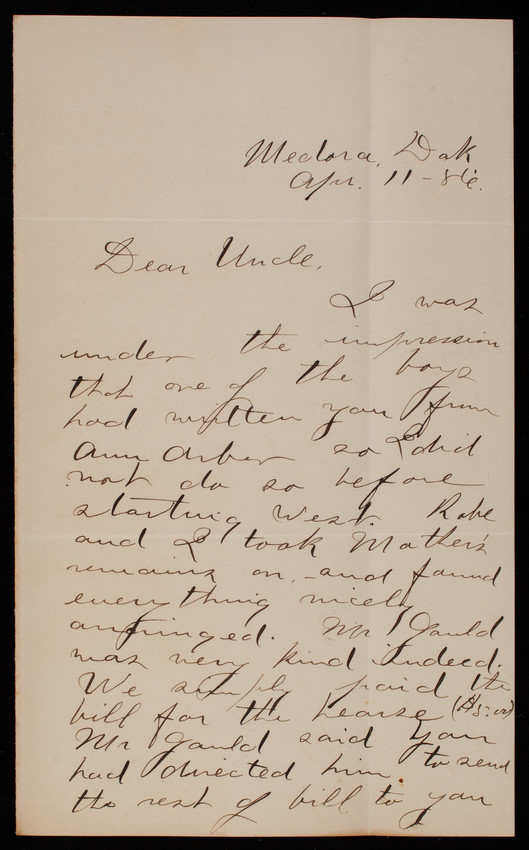 Medora, Dak
Apr. 11 - 86.
Dear Uncle.
I was
under the impression
that one of the boys
had written you from
Ann Arbor so I did
not do so before
starting West. Robe
and I took Mother's
remains on, - and found
everything nicely
arrainged. Mr Gauld
was very kind indeed.
We simply paid the
bill for the hearse ($5.00)
Mr Gauld said you
had directed him to send
the rest of bill to you